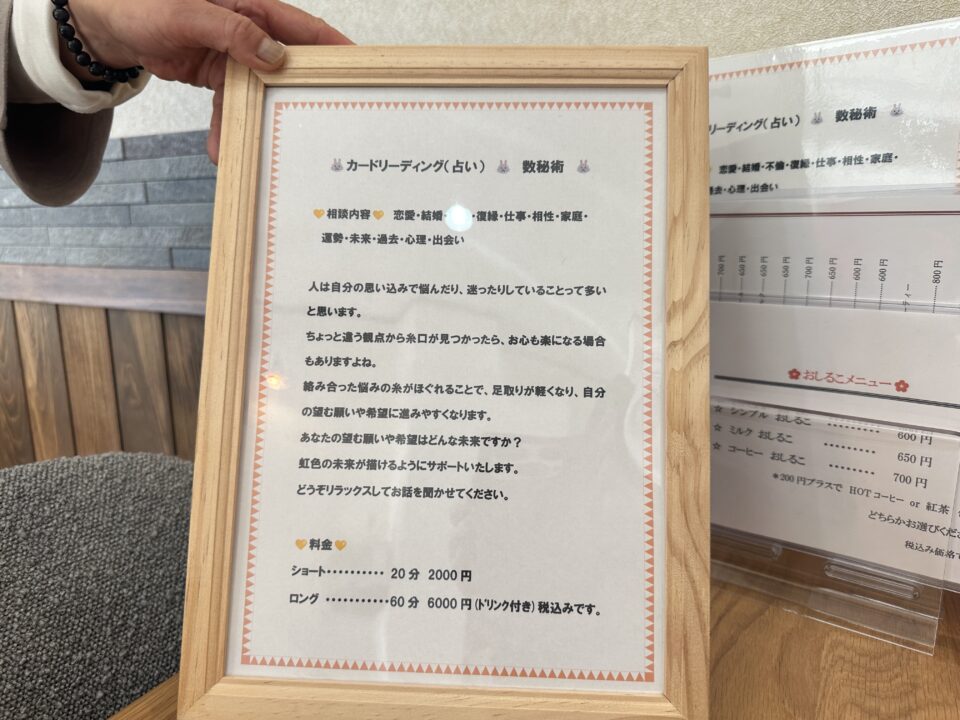 カードリーディング(占い) 数秘術
相談内容 恋愛・結婚・ ・復縁・仕事・相性・家庭・
運勢・未来・過去・心理・出会い
人は自分の思い込みで悩んだり、迷ったりしていることって多い
と思います。
ちょっと違う観点から糸口が見つかったら、お心も楽になる場合
もありますよね。
絡み合った悩みの糸がほぐれることで、足取りが軽くなり、自分
の望む願いや希望に進みやすくなります。
あなたの望む願いや希望はどんな未来ですか?
虹色の未来が描けるようにサポートいたします。
どうぞリラックスしてお話を聞かせてください。
料金
ショート・・・・・・・・・・ 20分 2000円
ロング ・・・・・・・・・・・60分 6000円(ドリンク付き)税込みです。
リーディング(占い) 数秘術
恋愛・結婚・不倫・復縁・仕事・相性・家庭・
過去・心理・出会い
700円
650円
650円
650円
700円
650円
600円
600円
800円
おしるこメニュー
☆ シンプル おしるこ ・・・・・・・・ 600円
☆ ミルク おしるこ ・・・・・・・・ 650円
☆ コーヒー おしるこ ・・・・・・・・ 700円
*200円プラスで HOTコーヒー or 紅茶
どちらかお選びくださ
税込み価格で